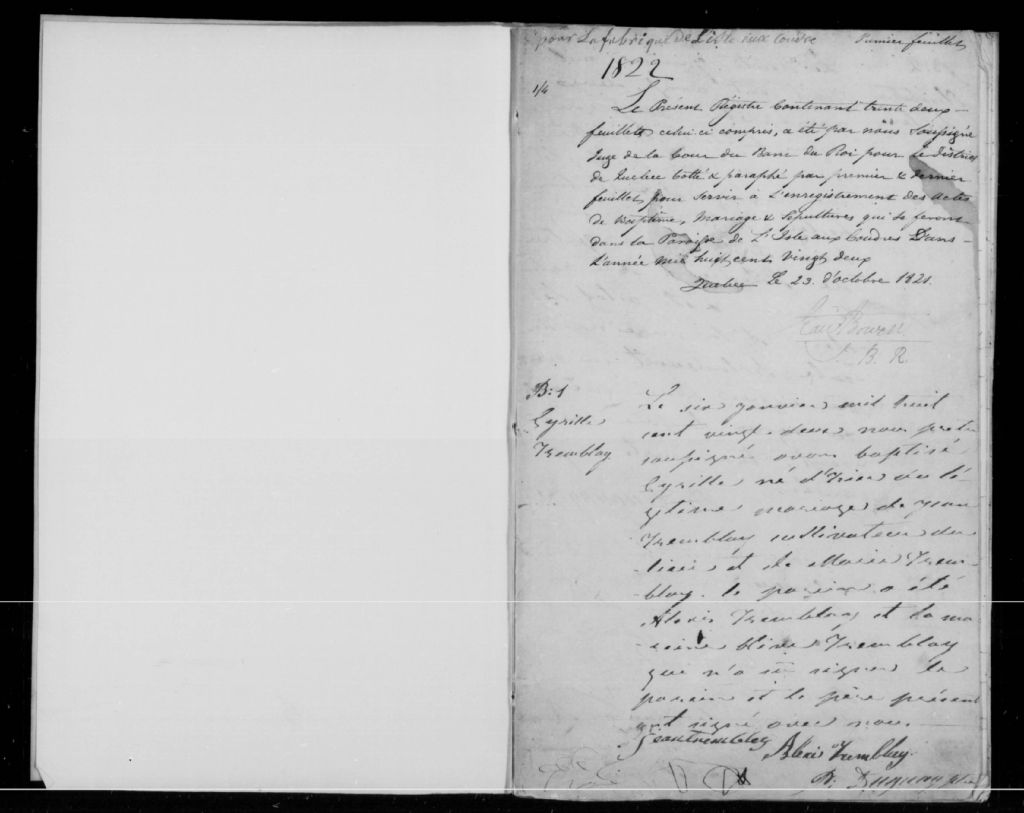 pour La fabrique de L'isle aux Coudre Premier feuillet
1822
Le Présent Régistre Contenant trente deux
feuillets celui-ci compris, a été par nous Soussigné
Juge de la Cour du Banc du Roi pour Le District
de Quebec Cotté & paraphé par premier & dernier
feuillet, pour Servir à L'enregistrement des actes
de Baptême, Mariage & Sepultures qui se feront
dans la Paroisse de L'Isle aux Coudres Dans
L'année Mil huit cent Vingt deux
Quebec Le 23. d'octobre 1821.
Bowen
J. B. R.
B: 1
Cyrille
Tremblay
Le six janvier mil huit
cent vingt-deux nous pretre
soussigné avons baptisé
Cyrille né d'hier du lé
gitime mariage de Jean
Tremblay cultivateur du
lieu et de Marie Trem
blay. le parein a été
Alexis Tremblay et la ma
reine Tremblay
qui n'a su signer le
parein et le père présent
ont signé avec nous.
Jean Tremblay
Alexis Tremblay
Duguay ptre